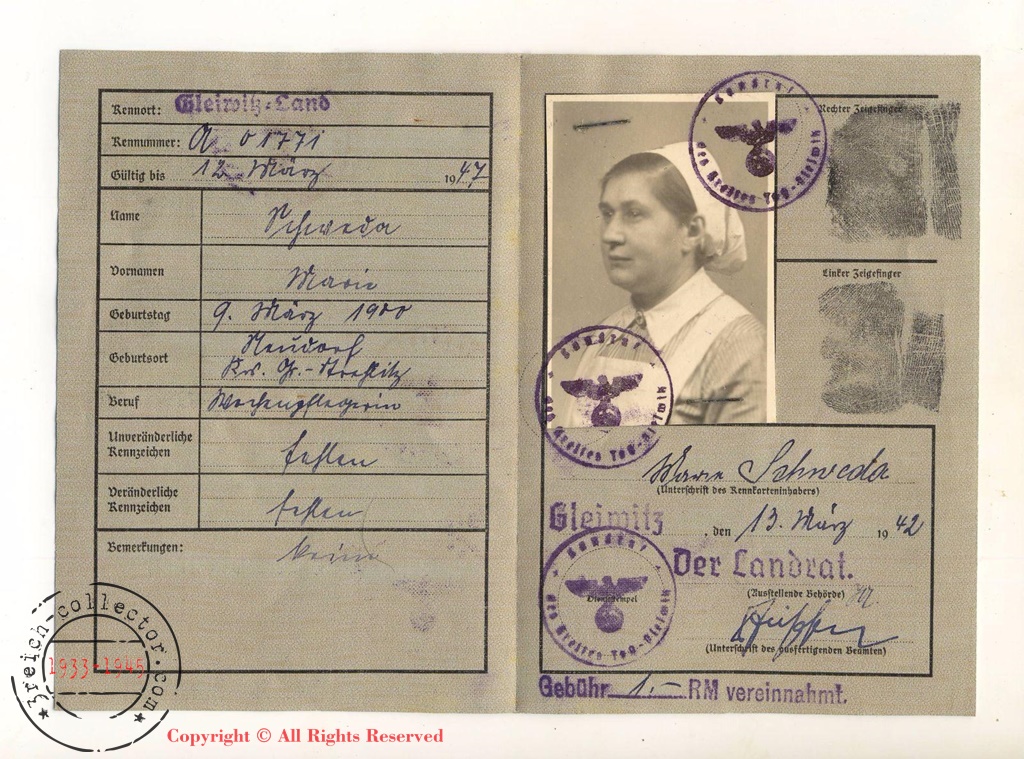 Kennort: Gleiwitz-Land
Kennummer: A 01771
Gültig bis 12. März 1947
Name Schweda
Vornamen Marie
Geburtstag 9. März 1900
Geburtsort Neudorf
Krs. Gr.-Strehlitz
Beruf Wochenpflegerin
Unveränderliche
Kennzeichen fehlen
Veränderliche
Kennzeichen fehlen
Bemerkungen: keine
Landrat
des Kreises Tost-Gleiwitz
Rechter Zeigefinger
Linker Zeigefinger
Landrat
des Kreises Tost-Gleiwitz
Marie Schweda
(Unterschrift des Kennkarteninhabers)
Gleiwitz, den 13. März 1942
Der Landrat.
(Ausstellende Behörde)
Landrat
Dienststempel
des Kreises Tost-Gleiwitz
(Unterschrift des ausfertigenden Beamten)
Gebühr 1.- RM vereinnahmt.
3reich-collector.com
1933-1945
Copyright © All Rights Reserved